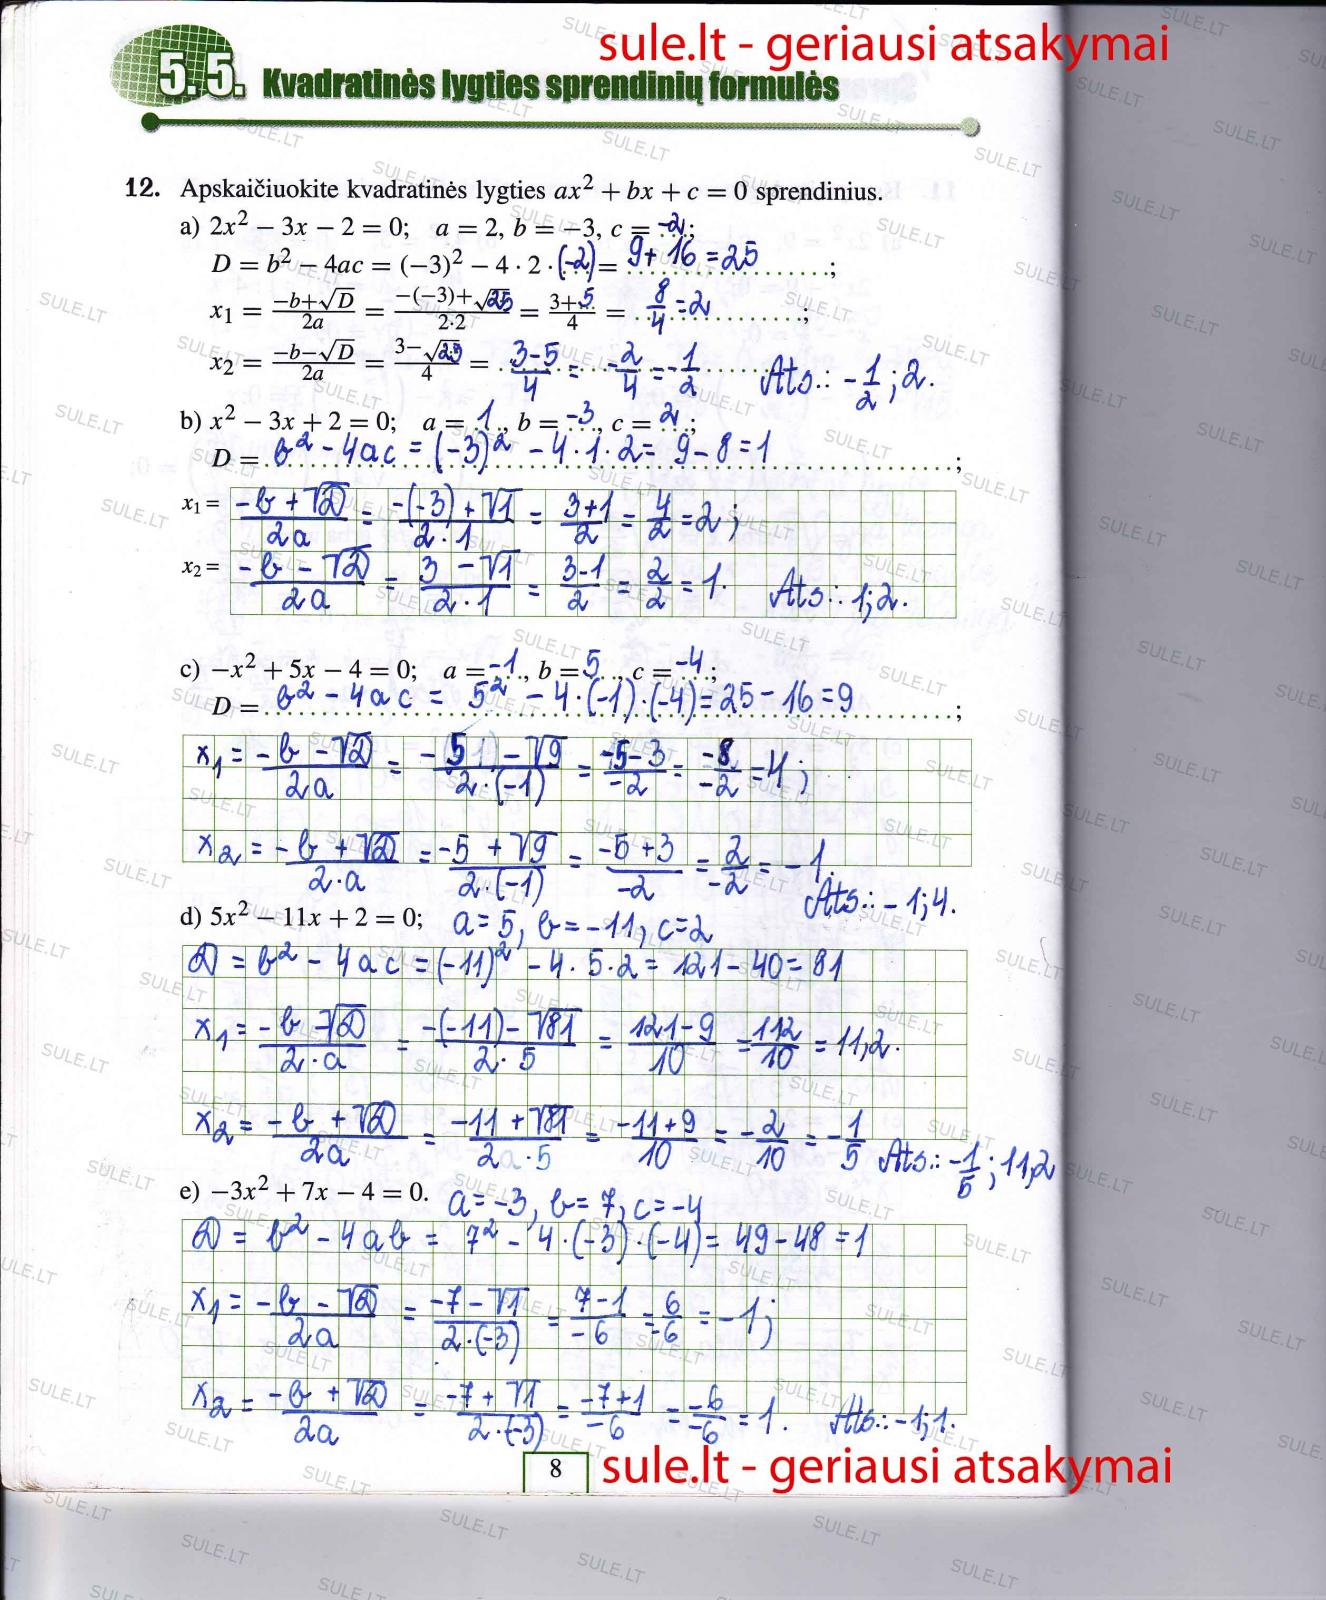 sule.lt - geriausi atsakymai
5.5. Kvadratinės lygties sprendinių formulės
12. Apskaičiuokite kvadratinės lygties ax² + bx + c = 0 sprendinius.
a) 2x² − 3x − 2 = 0; a = 2, b = −3, c = -2;
D = b² − 4ac = (−3)² − 4 · 2 · (-2) = 9+16=25;
x₁ = (−b+√D)/(2a) = (−(−3)+√25)/(2·2) = (3+5)/4 = 8/4 = 2;
x₂ = (−b−√D)/(2a) = (3−√25)/4 = (3-5)/4 = -2/4 = -1/2 Ats.: -1/2; 2.
b) x² − 3x + 2 = 0; a = 1, b = -3, c = 2;
D = b² - 4ac = (-3)² - 4·1·2 = 9-8=1;
x₁ = (-b+√D)/(2a) = (-(-3)+√1)/(2·1) = (3+1)/2 = 4/2 = 2;
x₂ = (-b-√D)/(2a) = (3-√1)/(2·1) = (3-1)/2 = 2/2 = 1. Ats.: 1; 2.
c) −x² + 5x − 4 = 0; a = -1, b = 5, c = -4;
D = b² - 4ac = 5² - 4·(-1)·(-4) = 25-16=9;
x₁ = (-b-√D)/(2a) = (-5-√9)/(2·(-1)) = (-5-3)/(-2) = (-8)/(-2) = 4;
x₂ = (-b+√D)/(2·a) = (-5+√9)/(2·(-1)) = (-5+3)/(-2) = 2/(-2) = -1.
Ats.: -1; 4.
d) 5x² − 11x + 2 = 0; a=5, b=-11, c=2
D = b² - 4ac = (-11)² - 4·5·2 = 121-40=81
x₁ = (-b-√D)/(2·a) = (-(-11)-√81)/(2·5) = (121-9)/10 = 112/10 = 11,2.
x₂ = (-b+√D)/(2a) = (-11+√81)/(2·5) = (-11+9)/10 = -2/10 = -1/5 Ats.: -1/5; 11,2
e) −3x² + 7x − 4 = 0. a=-3, b=7, c=-4
D = b² - 4ab = 7² - 4·(-3)·(-4) = 49-48=1
x₁ = (-b-√D)/(2a) = (-7-√1)/(2·(-3)) = (7-1)/(-6) = 6/(-6) = -1;
x₂ = (-b+√D)/(2a) = (-7+√1)/(2·(-3)) = (-7+1)/(-6) = (-6)/(-6) = 1. Ats.: -1; 1.
8
sule.lt - geriausi atsakymai